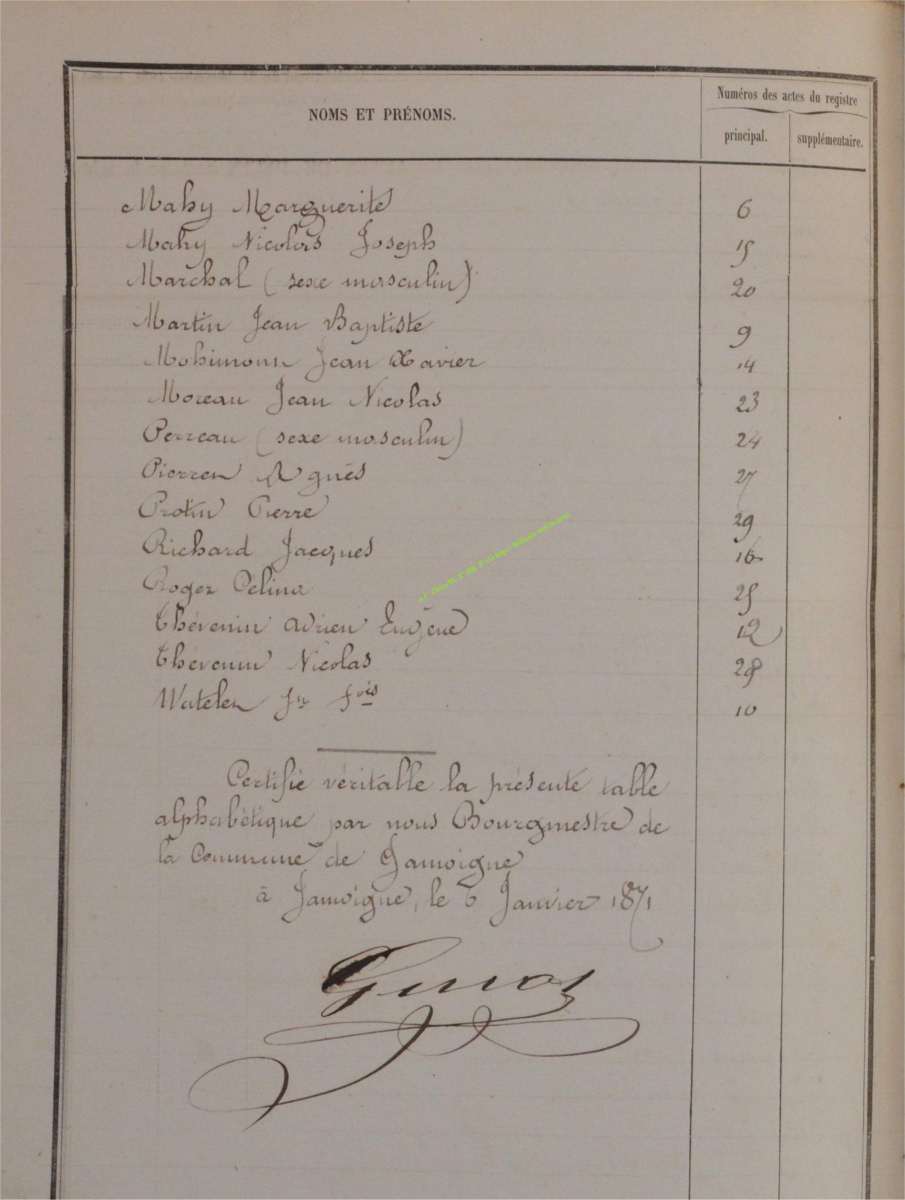 NOMS ET PRÉNOMS.
Numéros des actes du registre
principal.
supplémentaire.
Mahy Marguerite 6
Mahy Nicolas Joseph 15
Marchal (sexe masculin) 20
Martin Jean Baptiste 9
Mohimont Jean Xavier 14
Moreau Jean Nicolas 23
Perreau (sexe masculin) 24
Pierren Agnès 27
Protin Pierre 29
Richard Jacques 16
Roger Celina 25
Thévenin Adrien Eugène 12
Thévenin Nicolas 28
Watelet Jn fois 10
Certifié véritable la présente table
alphabétique par nous Bourgmestre de
la Commune de Jamoigne
à Jamoigne, le 6 Janvier 1871